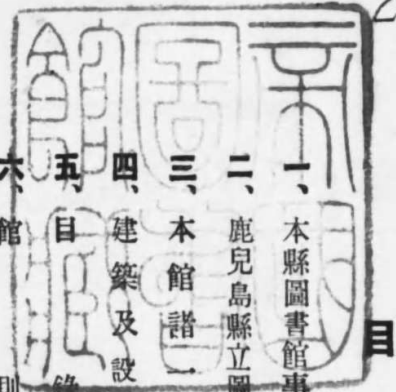 目
一、本縣圖書館事
二、鹿兒島縣立圖
三、本館諸一
四、建築及設
五、目錄
六、館則